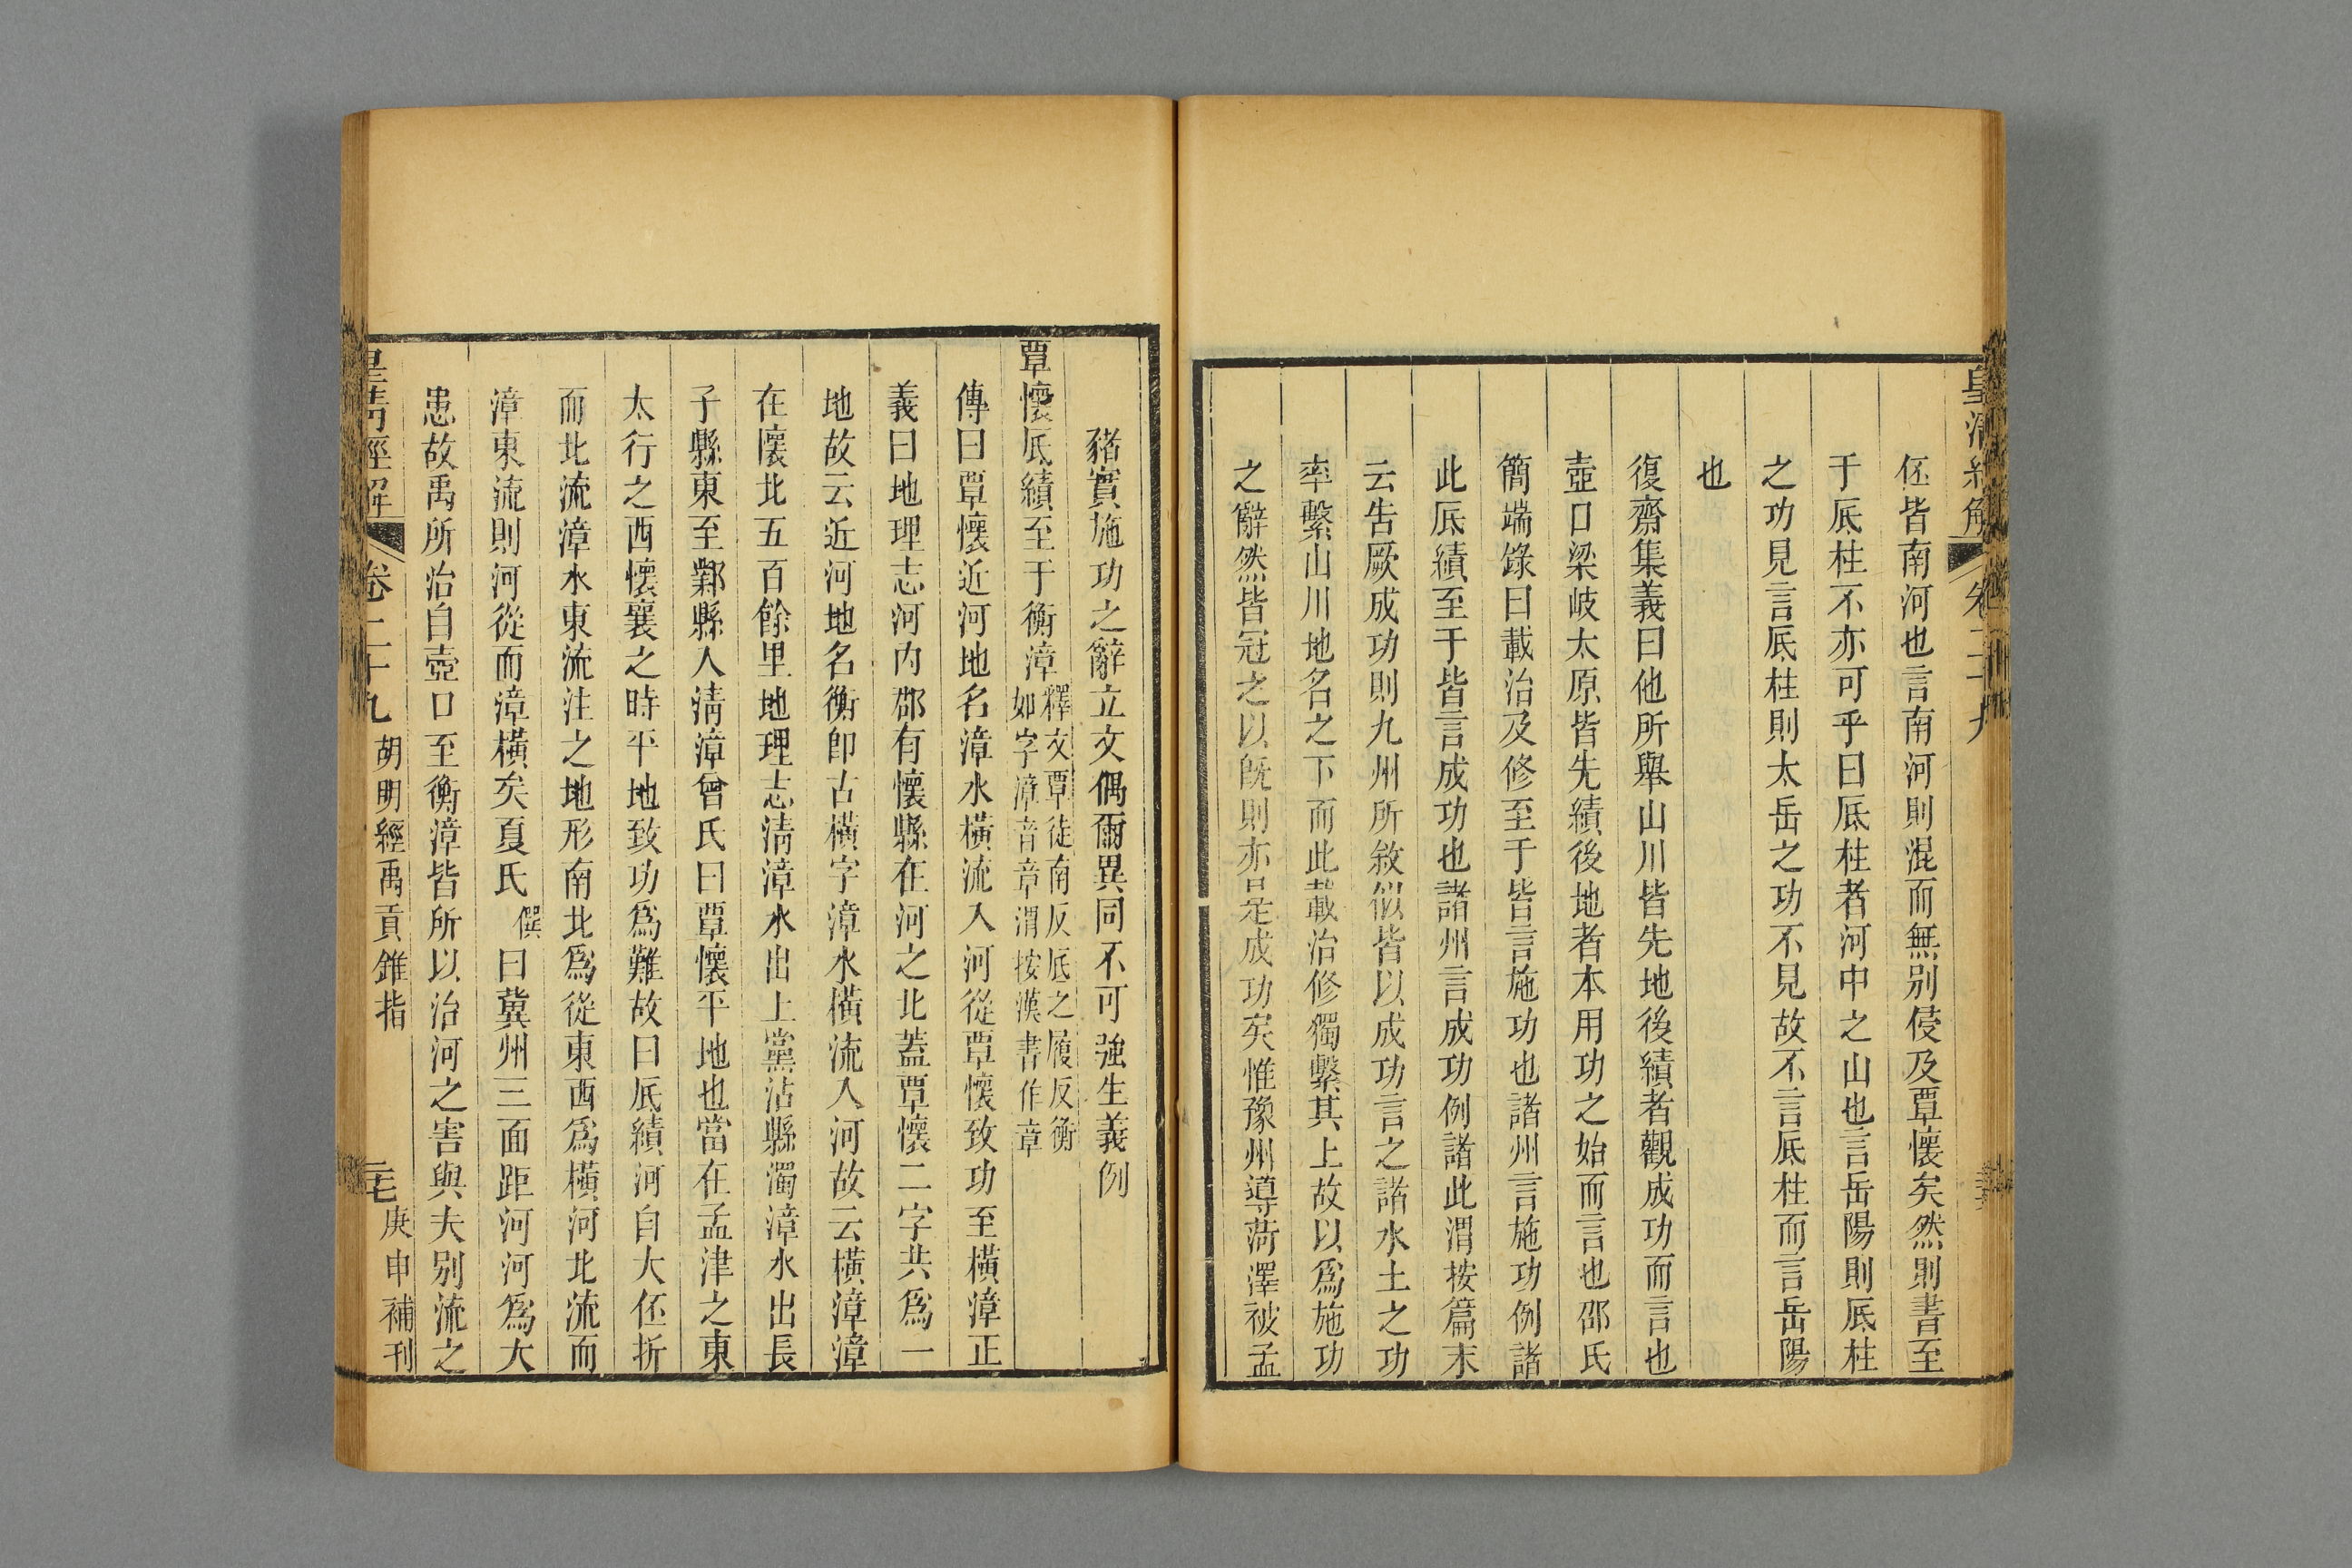 皇清經解
卷二十九
伾皆南河也言南河則混而無別侵及覃懷矣然則書至
于厎柱不亦可乎曰厎柱者河中之山也言岳陽則厎柱
之功見言厎柱則太岳之功不見故不言厎柱而言岳陽
也
復齋集義曰他所舉山川皆先地後績者觀成功而言也
壺口梁岐太原皆先績後地者本用功之始而言也邵氏
簡端錄曰載治及修至于皆言施功也諸州言施功例諸
此厎績至于皆言成功也諸州言成功例諸此渭按篇末
云告厥成功則九州所敘似皆以成功言之諸水土之功
率繫山川地名之下而此載治修獨繫其上故以爲施功
之辭然皆冠之以旣則亦是成功矣惟豫州導菏澤被孟
豬實施功之辭立文偶爾異同不可強生義例
覃懷厎績至于衡漳
釋文覃徒南反厎之履反衡
如字漳音章渭按漢書作章
傳曰覃懷近河地名漳水橫流入河從覃懷致功至橫漳正
義曰地理志河內郡有懷縣在河之北蓋覃懷二字共爲一
地故云近河地名衡卽古橫字漳水橫流入河故云橫漳漳
在懷北五百餘里地理志淸漳水出上黨沾縣濁漳水出長
子縣東至鄴縣入淸漳曾氏曰覃懷平地也當在孟津之東
太行之西懷襄之時平地致功爲難故曰厎績河自大伾折
而北流漳水東流注之地形南北爲從東西爲橫河北流而
漳東流則河從而漳橫矣夏氏僎曰冀州三面距河河爲大
患故禹所治自壺口至衡漳皆所以治河之害與夫別流之
皇淸經解
卷二十九
胡明經禹貢錐指
庚申補刊